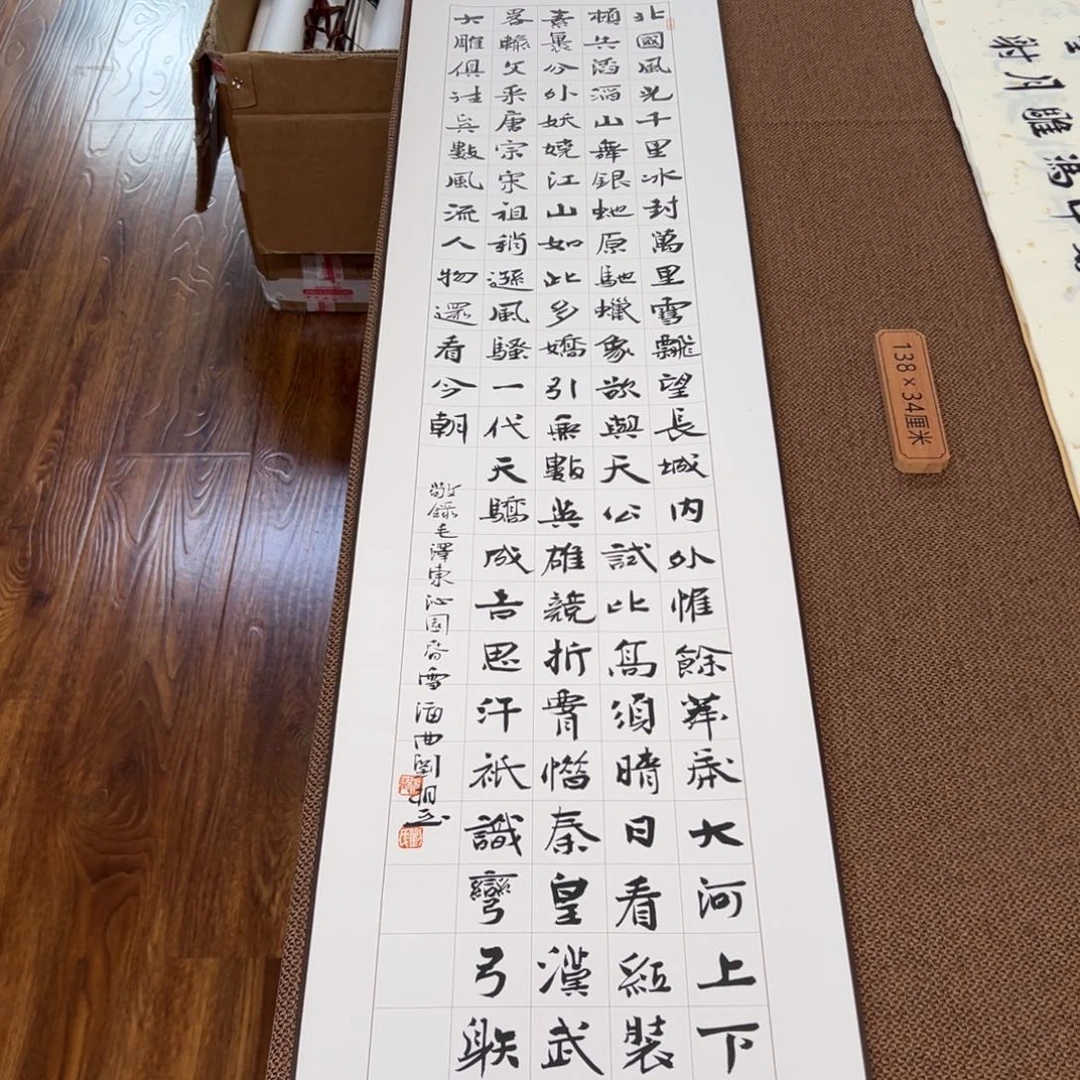 北國風光千里冰封萬里雪飄望長城内外惟餘莽莽大河上下
頓失滔滔山舞銀虵原馳蠟象欲與天公試比高須晴日看紅裝
素裹分外妖嬈江山如此多嬌引無數英雄競折腰惜秦皇漢武
畧輸文采唐宗宋祖稍遜風騷一代天驕成吉思汗祇識彎弓射
大雕俱往矣數風流人物還看今朝
敬錄毛澤東沁園春雪海曲劉
138×34厘米
月雕為
射